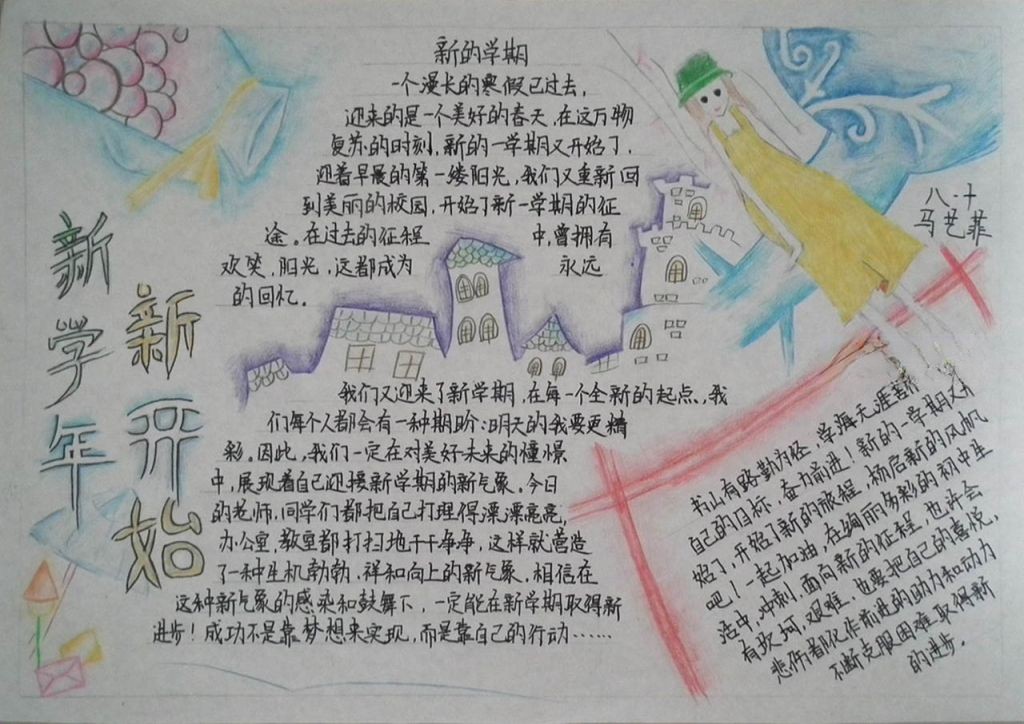 新学年
新开始
新的学期
一个漫长的寒假已过去，
迎来的是一个美好的春天，在这万物
复苏的时刻，新的一学期又开始了，
迎着早晨的第一缕阳光，我们又重新回
到美丽的校园，开始了新一学期的征
途。在过去的征程中，曾拥有
欢笑，阳光，这都成为永远
的回忆。
八.十
马艺菲
我们又迎来了新学期，在每一个全新的起点，我
们每个人都会有一种期盼：明天的我要更精
彩。因此，我们一定在对美好未来的憧憬
中，展现着自己迎接新学期的新气象。今日
的老师，同学们都把自己打理得漂漂亮亮，
办公室，教室都打扫地干干净净，这样就营造
了一种生机勃勃，祥和向上的新气象。相信在
这种新气象的感染和鼓舞下，一定能在新学期取得新
进步！成功不是靠梦想来实现，而是靠自己的行动……
书山有路勤为径，学海无涯
自己的目标，奋力前进！新的一学期又开
始了，开始了新的旅程，杨启新的风帆
吧！一起加油，在绚丽多彩的初中生
活中，冲刺，面向新的征程，也许会
有坎坷，艰难，也要把自己的喜悦，
悲伤都化作前进的助力和动力
不断克服困难取得新
的进步。